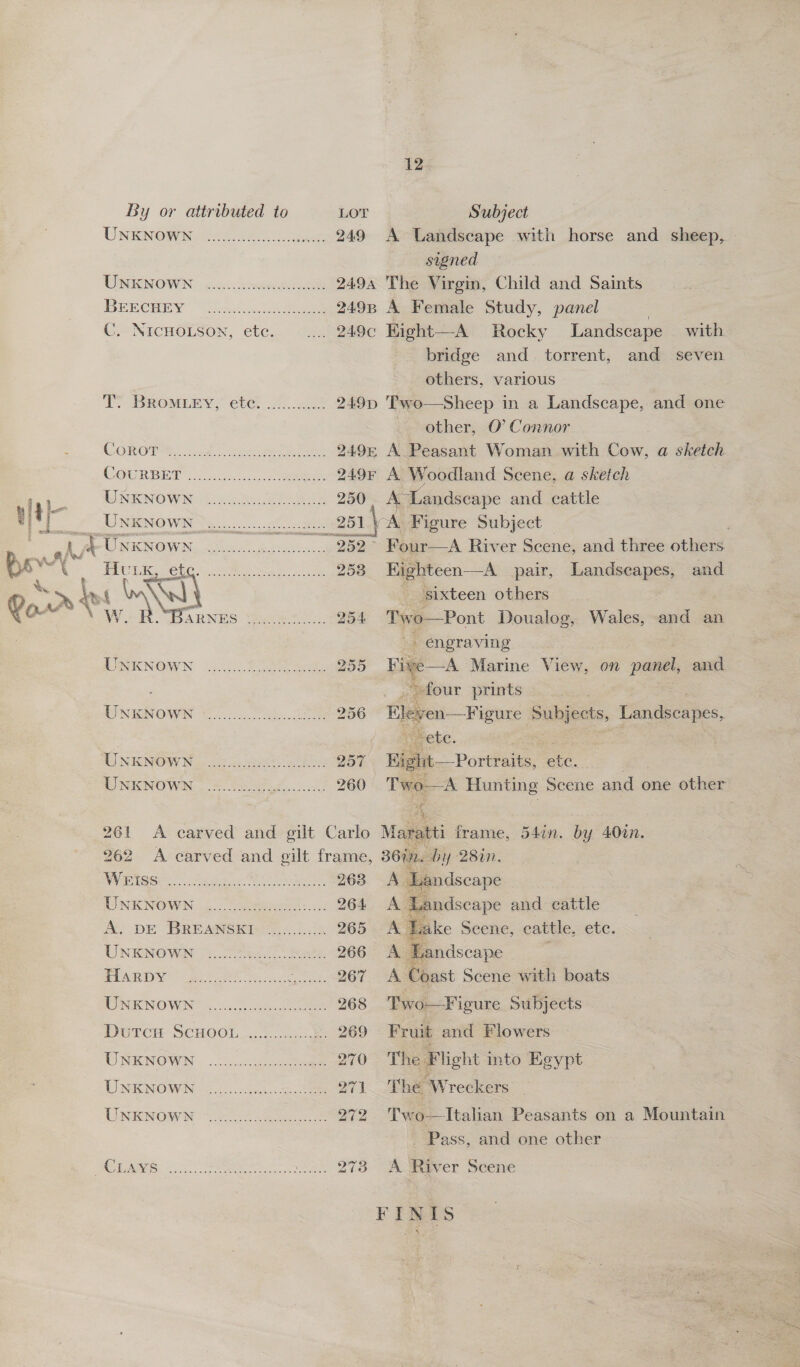 12
By or attributed to LOT Subject
UNKNOWN .......................... 249 A Landscape with horse and sheep,
signed
UNKNOWN .......................... 249A The Virgin, Child and Saints
BEECHEY .......................... 249B A Female Study, panel
C. NICHOLSON, etc. .... 249C Eight—A Rocky Landscape with
bridge and torrent, and seven
others, various
T. BROMLEY, etc. ............ 249D Two—Sheep in a Landscape, and one
other, O' Connor
COROT .......................... 249E A Peasant Woman with Cow, a sketch
COURBET .......................... 249F A Woodland Scene, a sketch
UNKNOWN .......................... 250 A Landscape and cattle
UNKNOWN .......................... 251 A Figure Subject
UNKNOWN .......................... 252 Four—A River Scene, and three others
HULK, etc. .......................... 253 Eighteen—A pair, Landscapes, and
sixteen others
W. R. BARNES .................. 254 Two—Pont Doualog, Wales, and an
engraving
UNKNOWN .......................... 255 Five—A Marine View, on panel, and
four prints
UNKNOWN .......................... 256 Eleven—Figure Subjects, Landscapes,
etc.
UNKNOWN .......................... 257 Eight—Portraits, etc.
UNKNOWN .......................... 260 Two—A Hunting Scene and one other
261 A carved and gilt Carlo Maratti frame, 54in. by 40in.
262 A carved and gilt frame, 36in. by 28in.
WEISS .......................... 263 A Landscape
UNKNOWN .......................... 264 A Landscape and cattle
A. DE BREANSKI ............ 265 A Lake Scene, cattle, etc.
UNKNOWN .......................... 266 A Landscape
HARDY .......................... 267 A Coast Scene with boats
UNKNOWN .......................... 268 Two—Figure Subjects
DUTCH SCHOOL .............. 269 Fruit and Flowers
UNKNOWN .......................... 270 The Flight into Egypt
UNKNOWN .......................... 271 The Wreckers
UNKNOWN .......................... 272 Two—Italian Peasants on a Mountain
Pass, and one other
CLAYS .......................... 273 A River Scene
FINIS